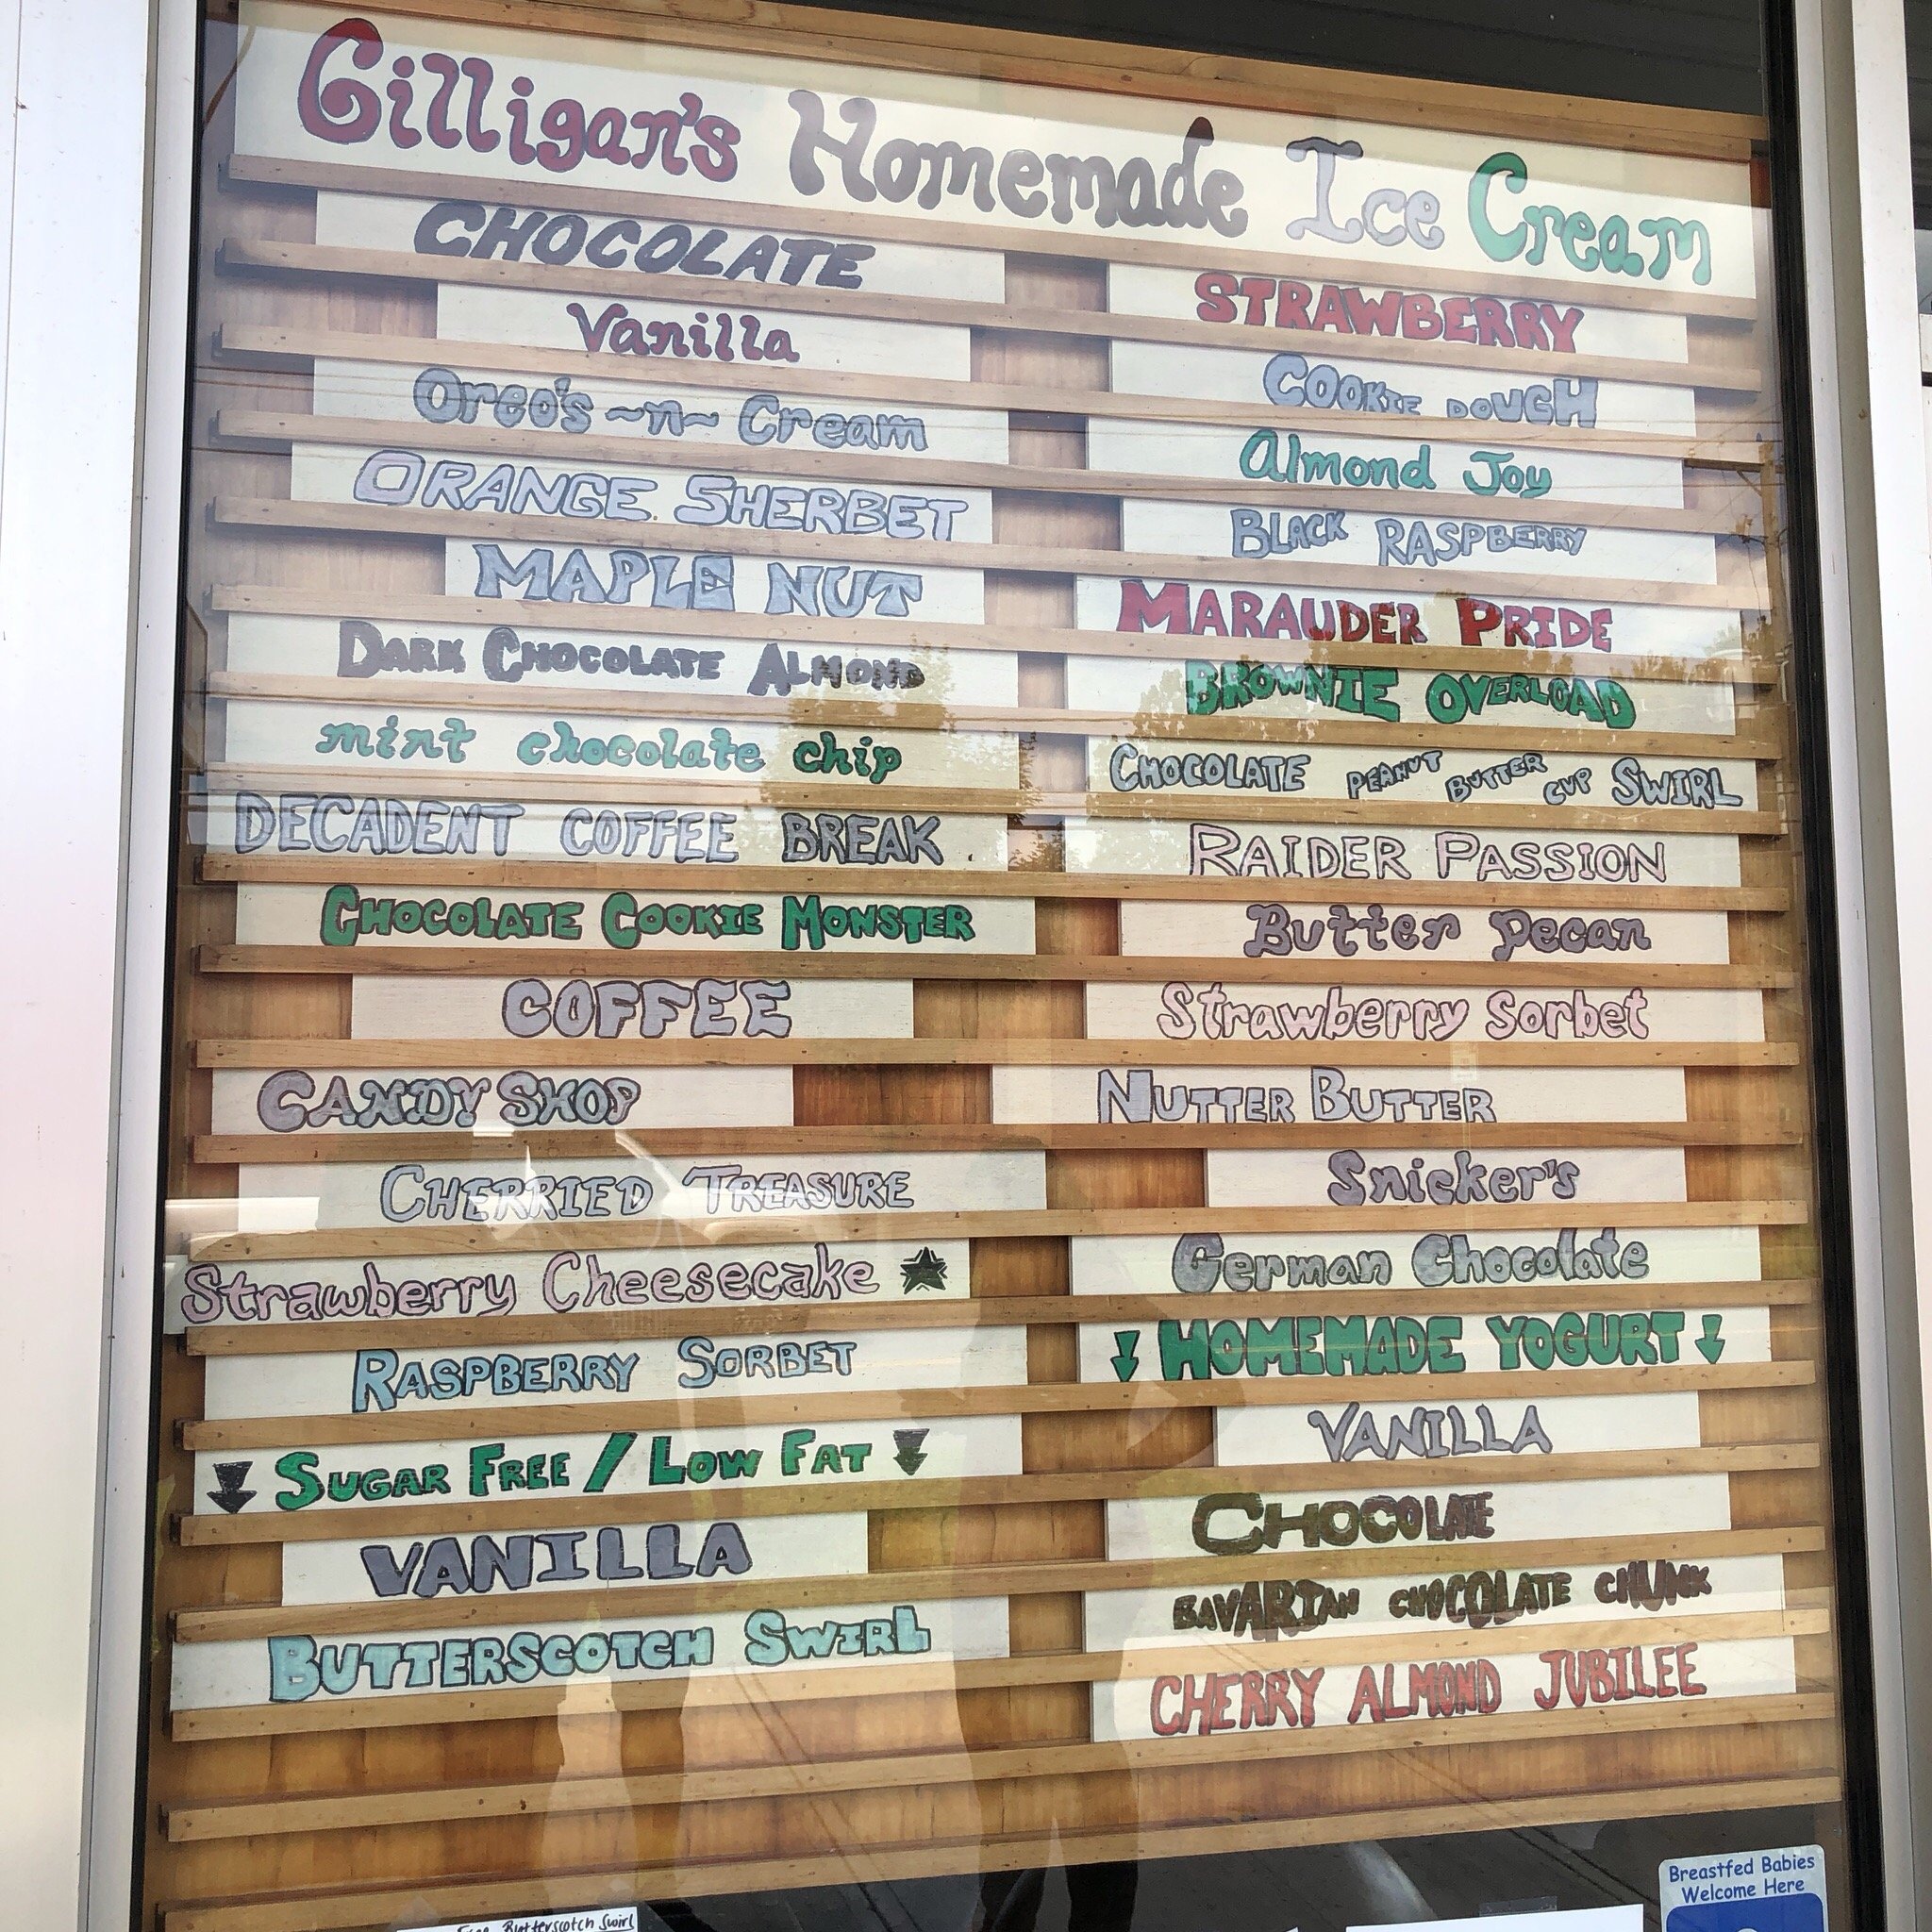 Gilligan's Homemade Ice Cream
CHOCOLATE
Vanilla
Oreo's ~n~ Cream
ORANGE SHERBET
MAPLE NUT
DARK CHOCOLATE ALMOND
mint chocolate chip
DECADENT COFFEE BREAK
CHOCOLATE COOKIE MONSTER
COFFEE
CANDY SHOP
CHERRIED TREASURE
Strawberry Cheesecake ★
RASPBERRY SORBET
↓ SUGAR FREE / LOW FAT ↓
VANILLA
BUTTERSCOTCH SWIRL
STRAWBERRY
COOKIE DOUGH
Almond Joy
BLACK RASPBERRY
MARAUDER PRIDE
BROWNIE OVERLOAD
CHOCOLATE PEANUT BUTTER CUP SWIRL
RAIDER PASSION
Butter Pecan
Strawberry Sorbet
NUTTER BUTTER
Snicker's
German Chocolate
↓ HOMEMADE YOGURT ↓
VANILLA
CHOCOLATE
BAVARIAN CHOCOLATE CHUNK
CHERRY ALMOND JUBILEE
Butterscotch Swirl
Breastfed Babies
Welcome Here